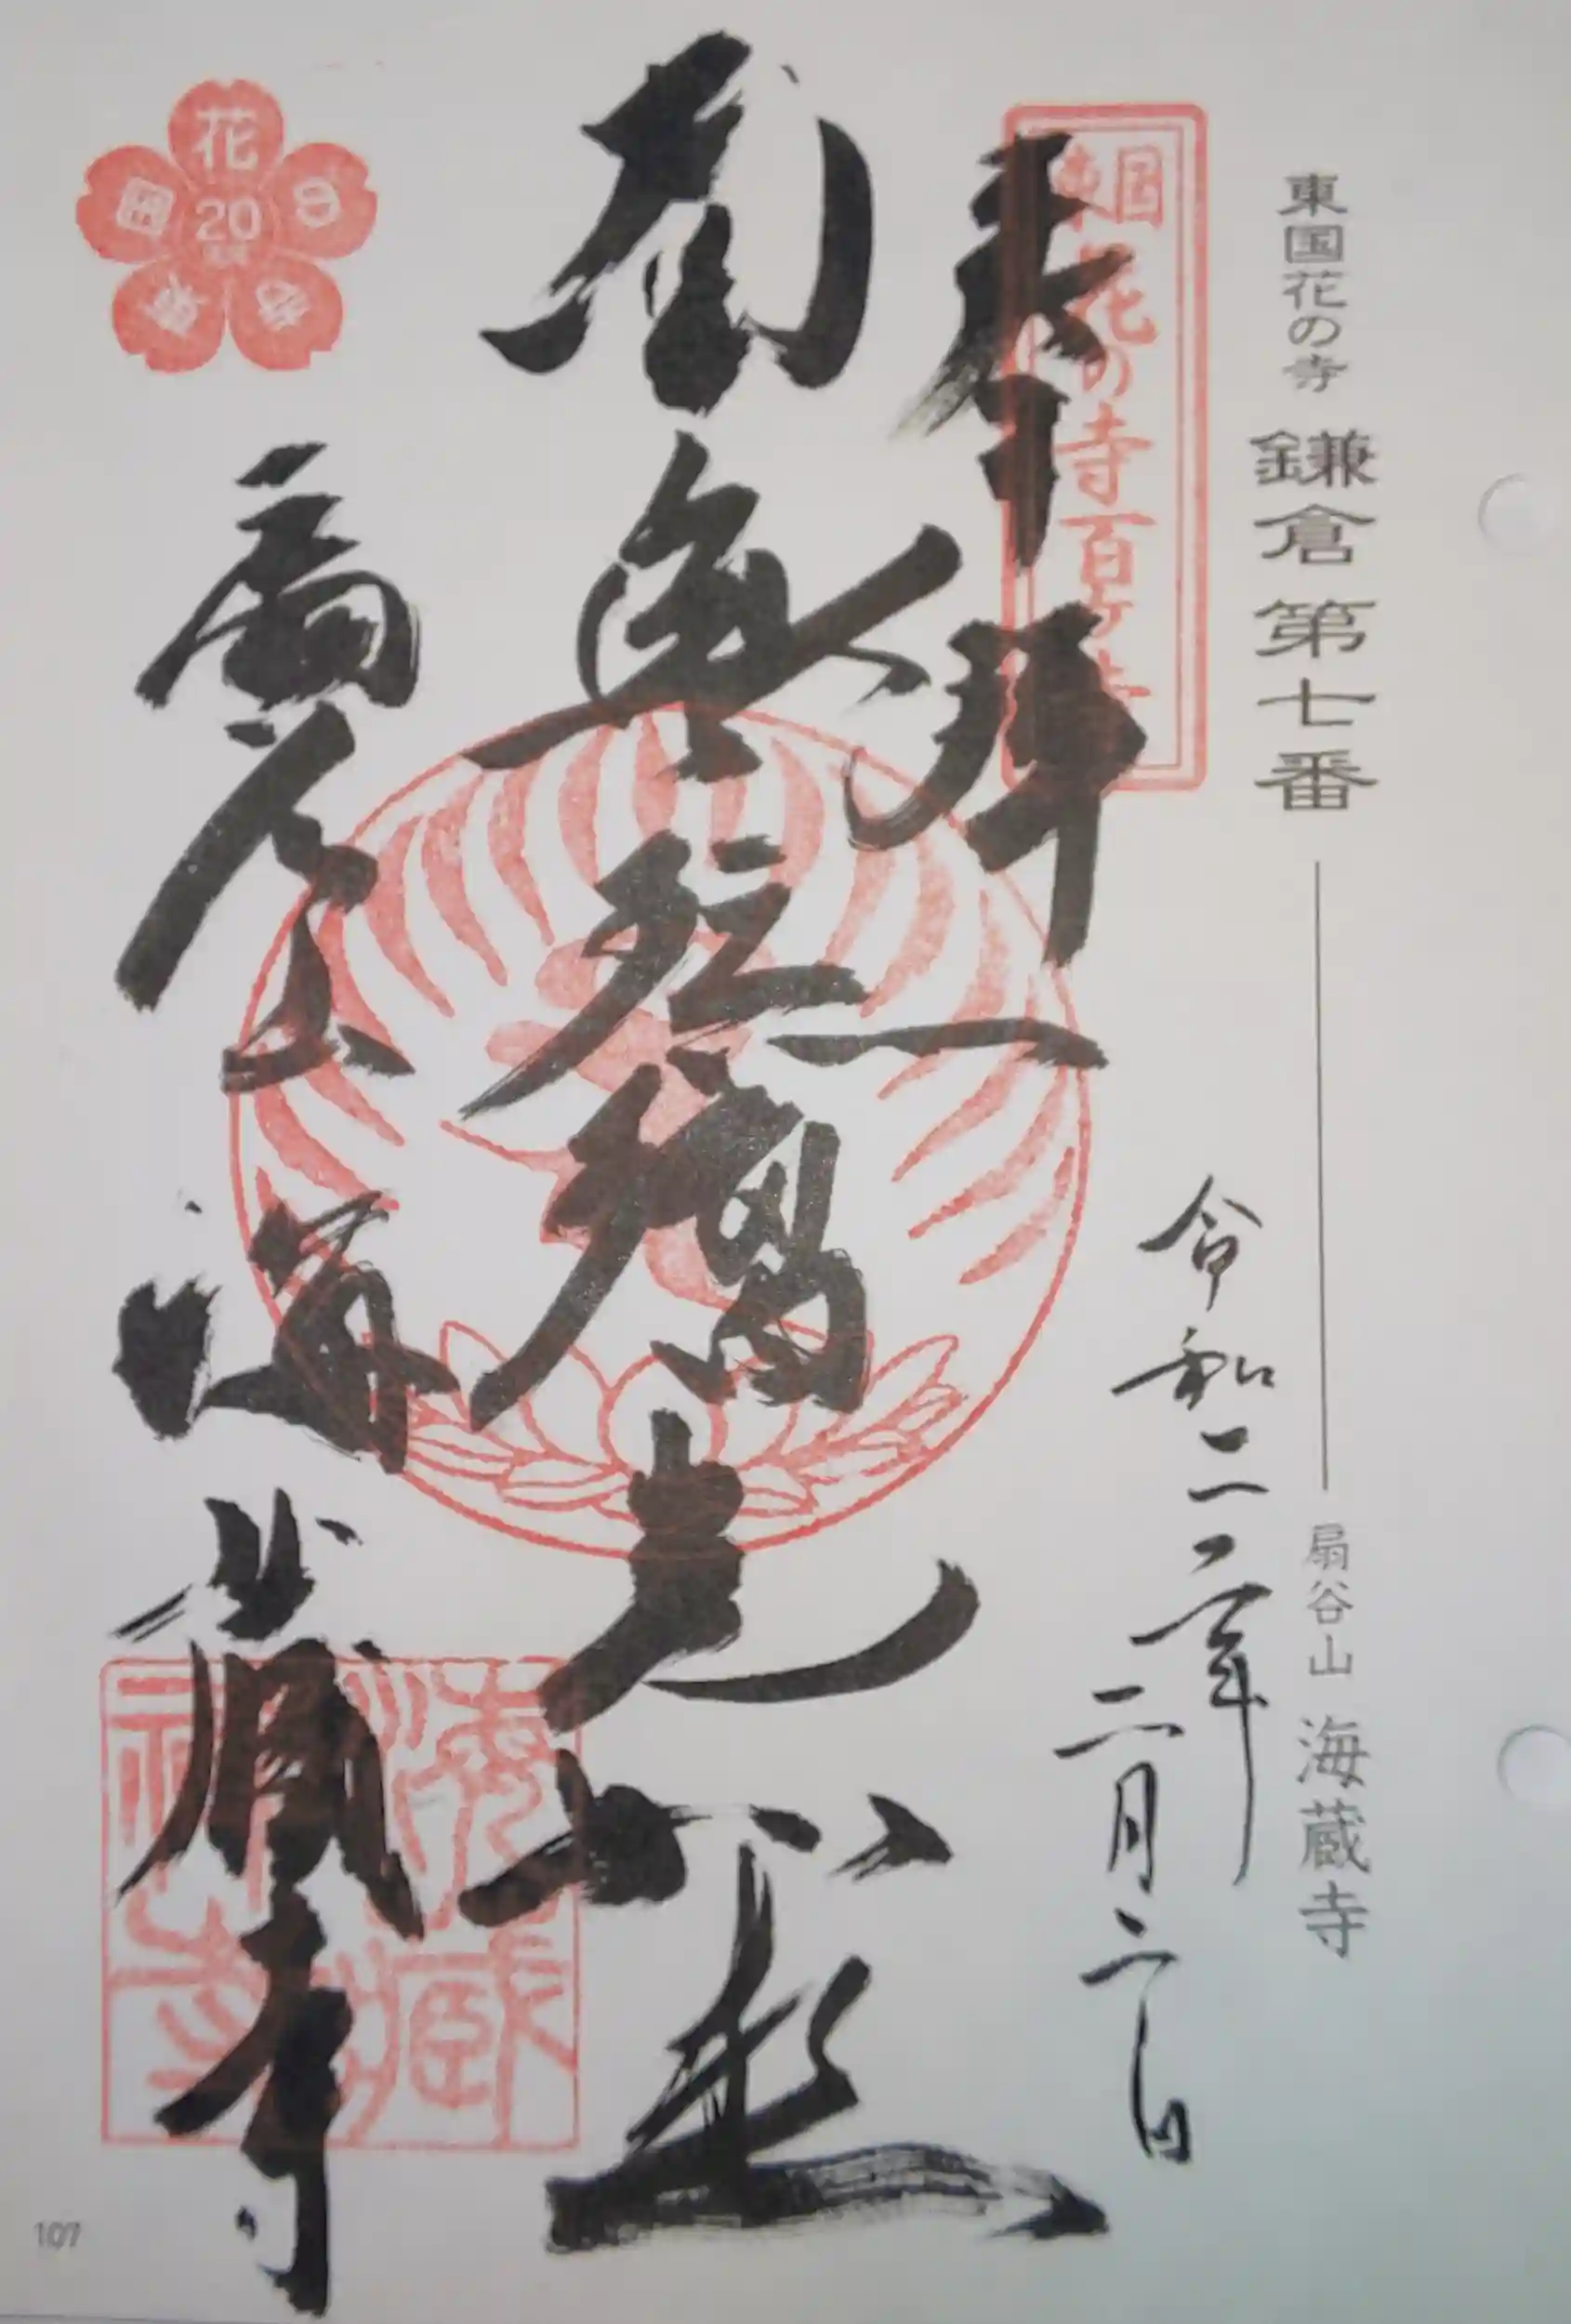 東国花の寺 鎌倉第七番
扇谷山 海蔵寺
東国花の寺百ヶ寺
奉拝
令和二年二月二日
南無瑠璃光如来
扇谷山 海蔵寺
東国花の寺
20
海蔵禅寺
107